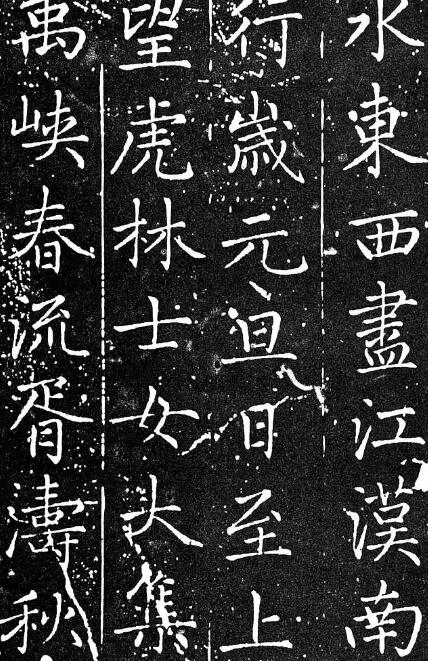 水東西盡江漢南
行歲元宜日至上
望虎林士女大集
萬峽春流胥濤秋